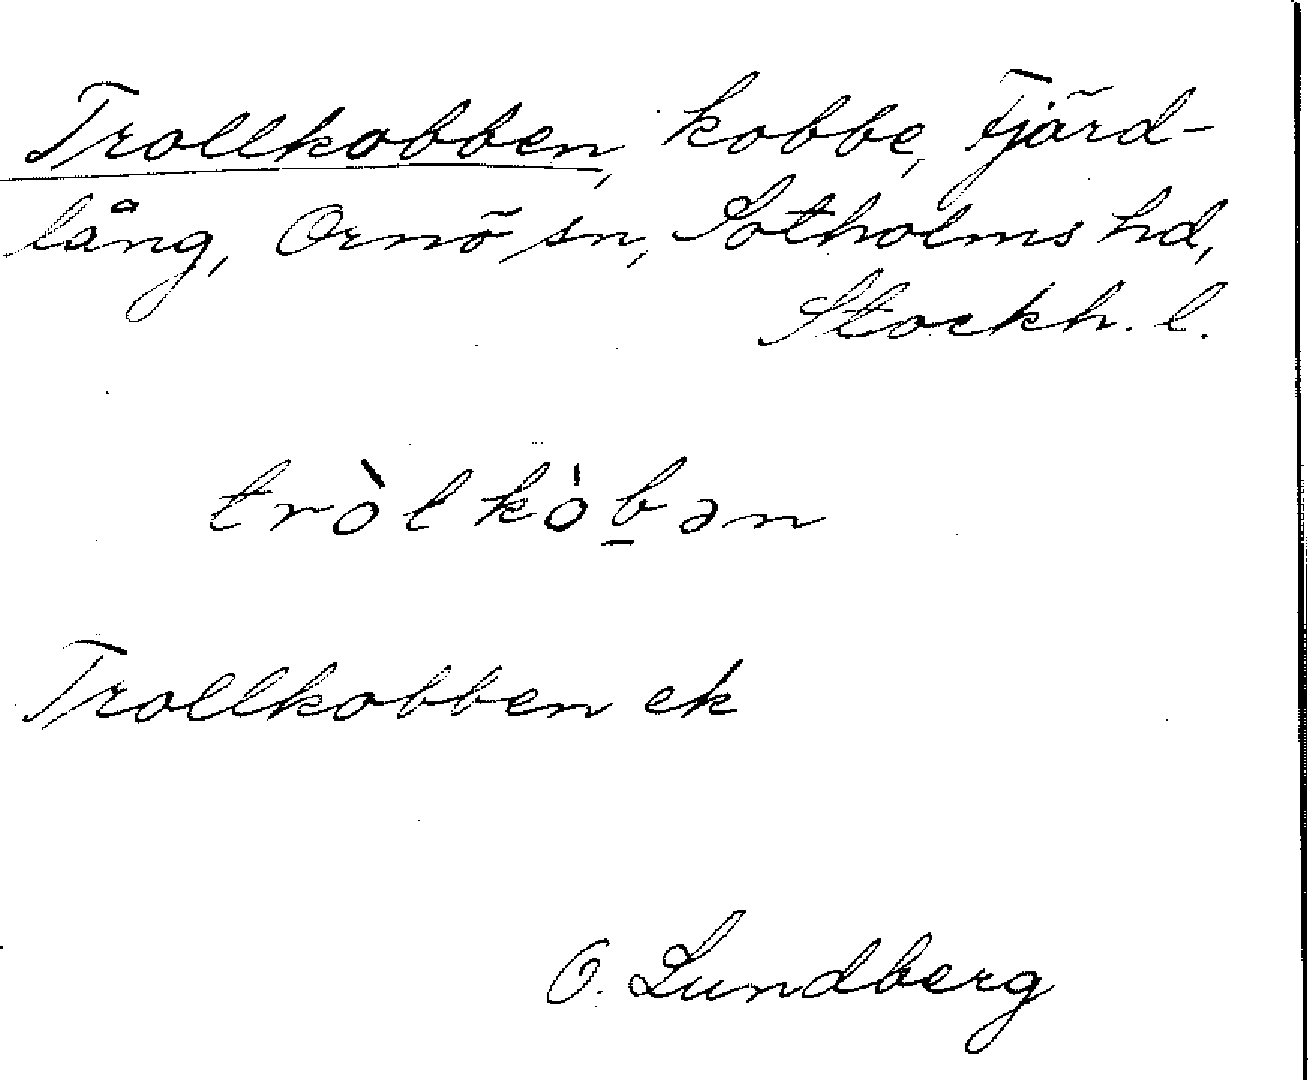 Trollkobben, kobbe, Fjärd-
lång, Ornö sn, Sotholms hd,
Stockh. l.
tròlkòb̲ən
Trollkobben ek
O. Lundberg